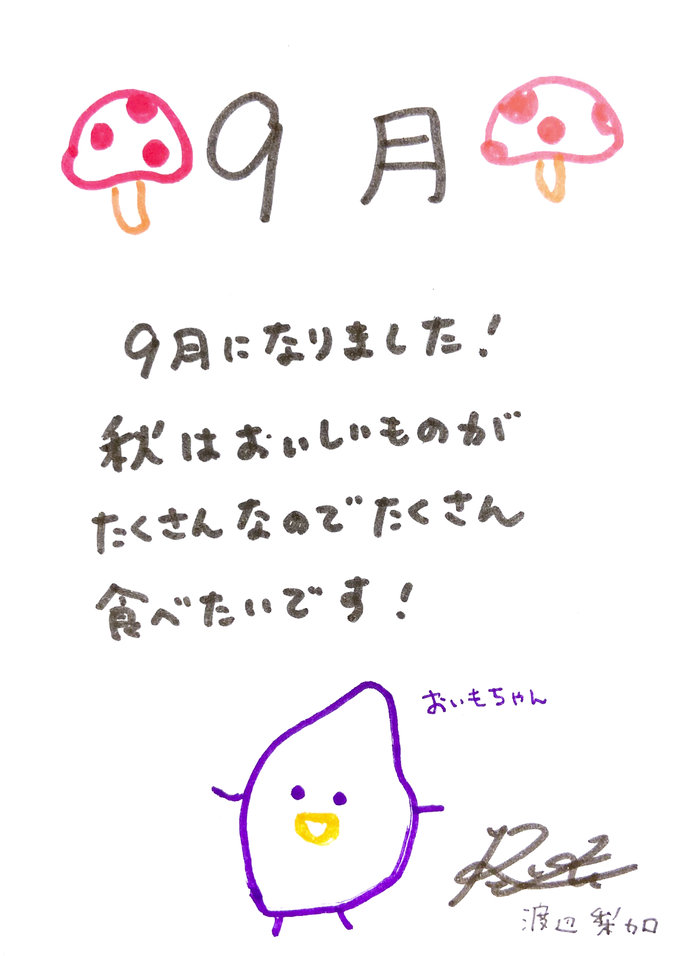 9月
9月になりました!
秋はおいしいものが
たくさんなのでたくさん
食べたいです!
おいもちゃん
渡辺 梨加